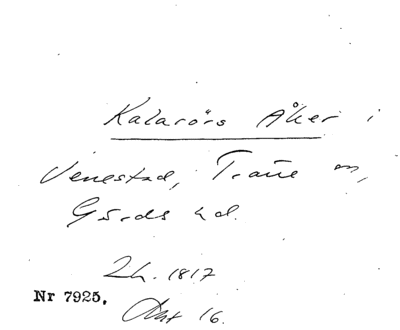 Kalarörs Åker i
Venestad, Träne sn,
Gärds hd.
Lh. 1817
Nr 7925.
Akt 16.